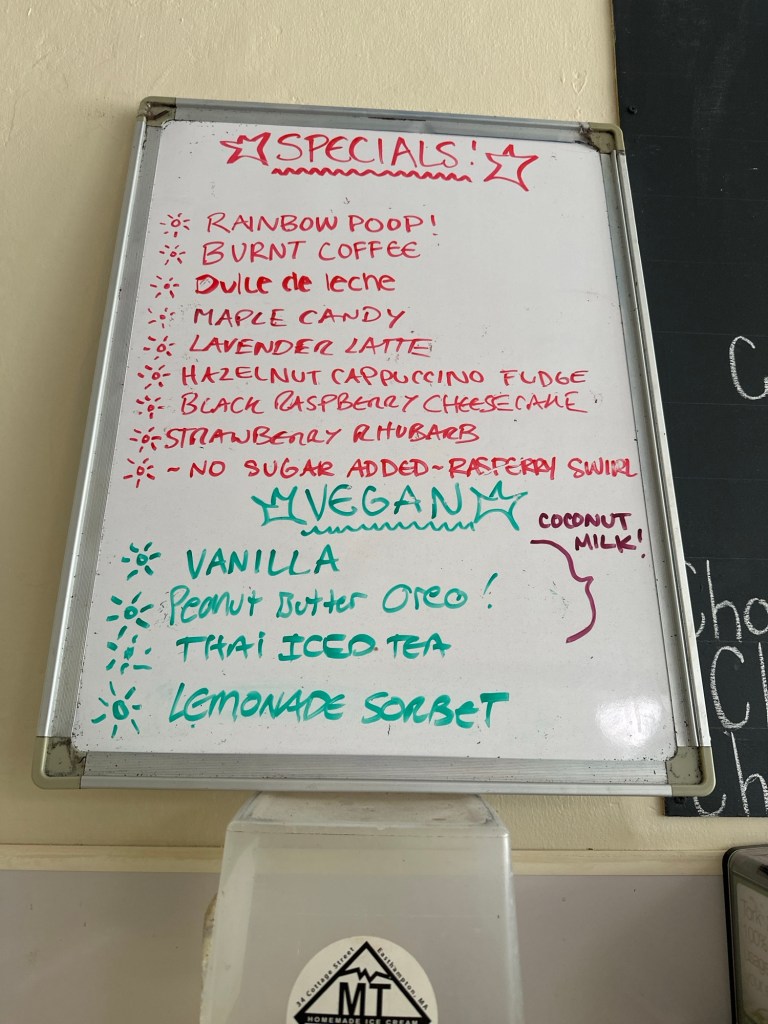 SPECIALS!
RAINBOW POOP!
BURNT COFFEE
Dulce de leche
MAPLE CANDY
LAVENDER LATTE
HAZELNUT CAPPUCCINO FUDGE
BLACK RASPBERRY CHEESECAKE
STRAWBERRY RHUBARB
~NO SUGAR ADDED~RASPERRY SWIRL
VEGAN
COCONUT
MILK!
VANILLA
Peanut Butter Oreo!
THAI ICED TEA
LEMONADE SORBET
34 Cottage Street Easthampton, MA
MT
HOMEMADE ICE CREAM